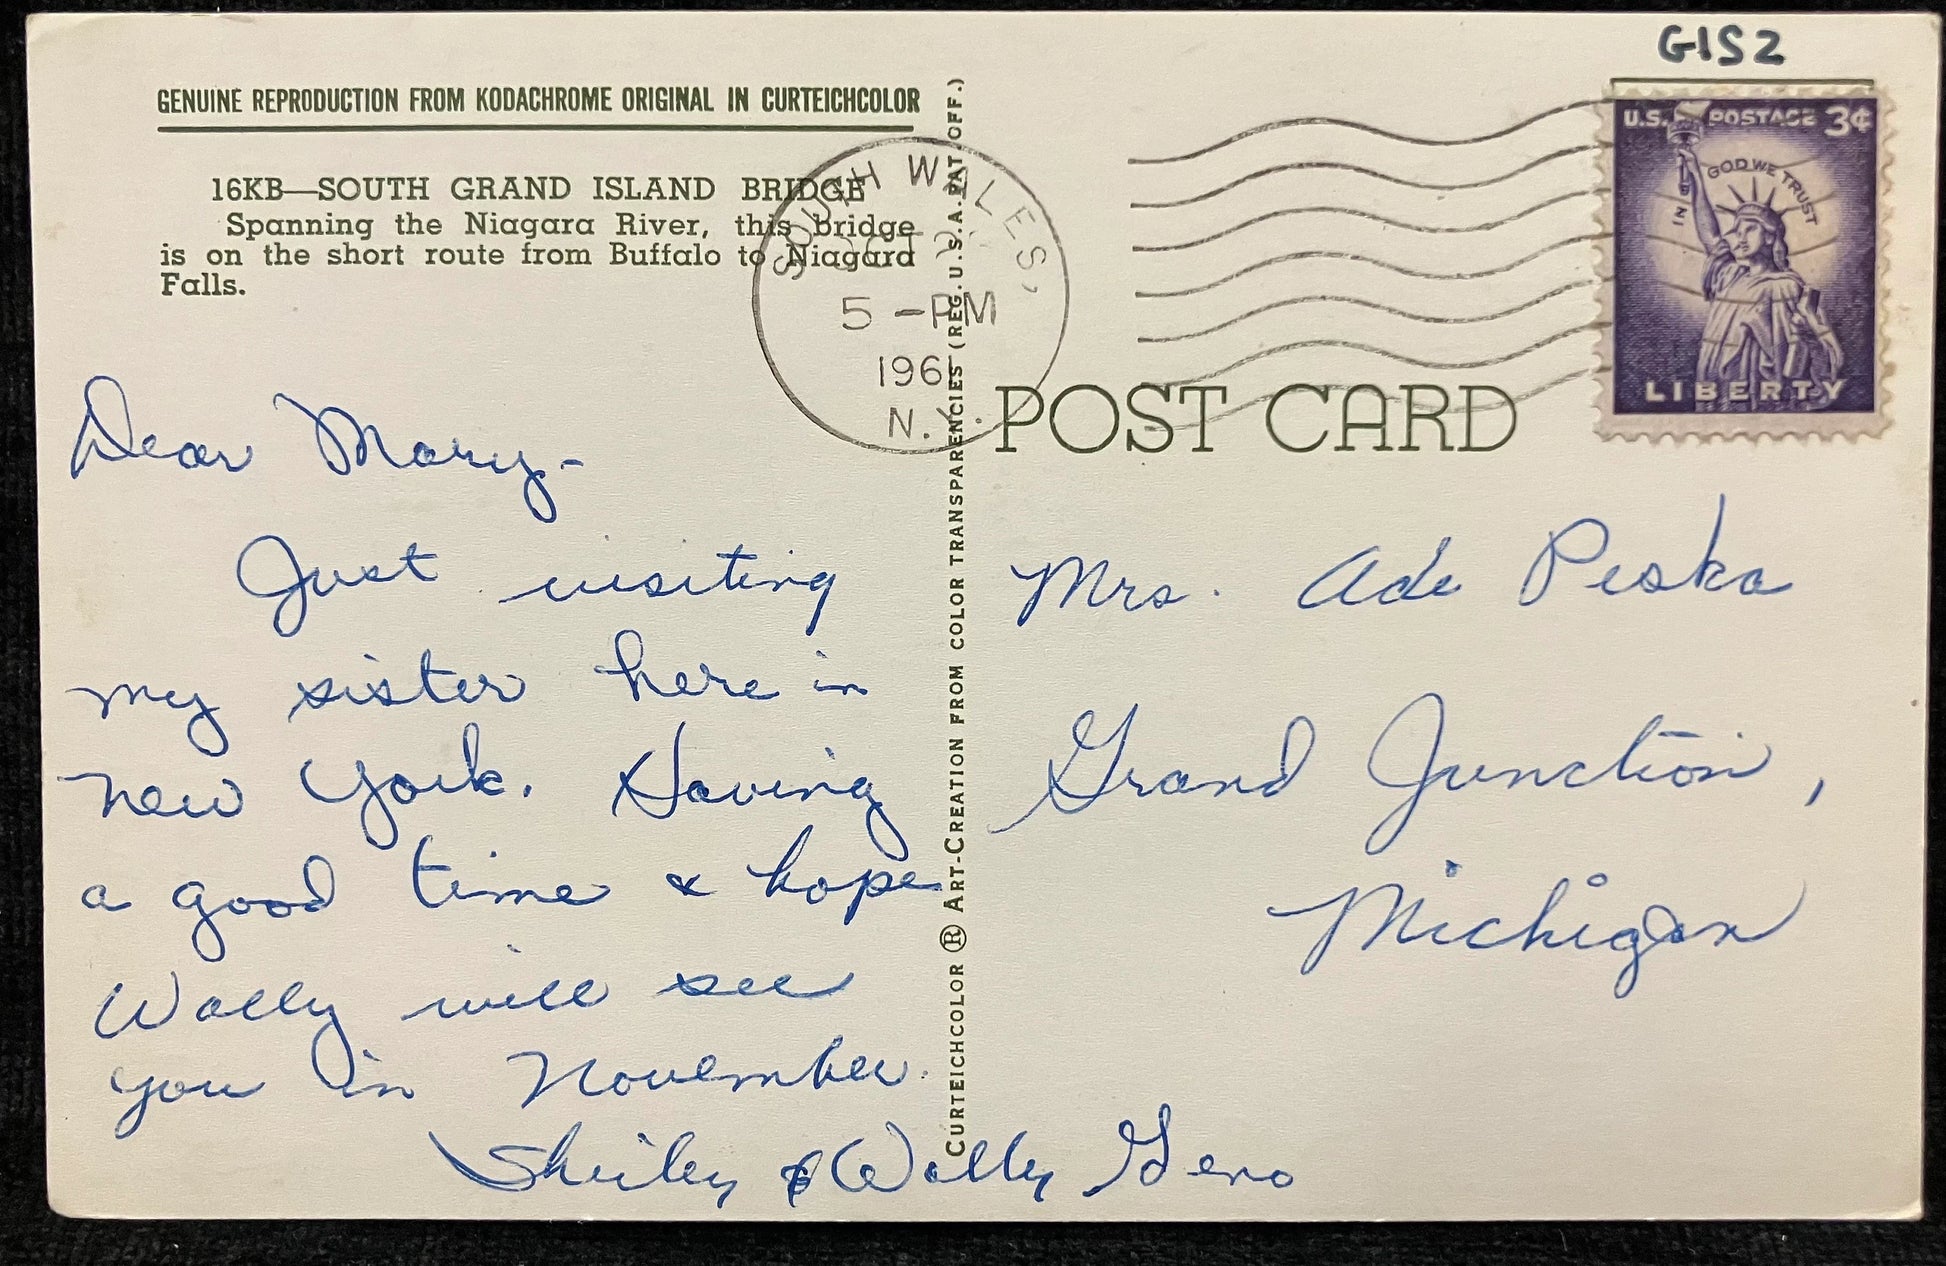 GENUINE REPRODUCTION FROM KODACHROME ORIGINAL IN CURTEICHCOLOR
16KB—SOUTH GRAND ISLAND BRIDGE
Spanning the Niagara River, this bridge
is on the short route from Buffalo to Niagara
Falls.
Dear Mary-
Just visiting
my sister here in
New York. Having
a good time & hope
Wally will see
you in November.
Shirley & Wally Gero
CURTEICHCOLOR ® ART-CREATION FROM COLOR TRANSPARENCIES (REG. U.S.A. PAT. OFF.)
SOUTH WALES,
OCT
5 -PM
196
N.Y.
GIS2
U.S. POSTAGE 3¢
IN GOD WE TRUST
LIBERTY
POST CARD
Mrs. Ade Peska
Grand Junction,
Michigan